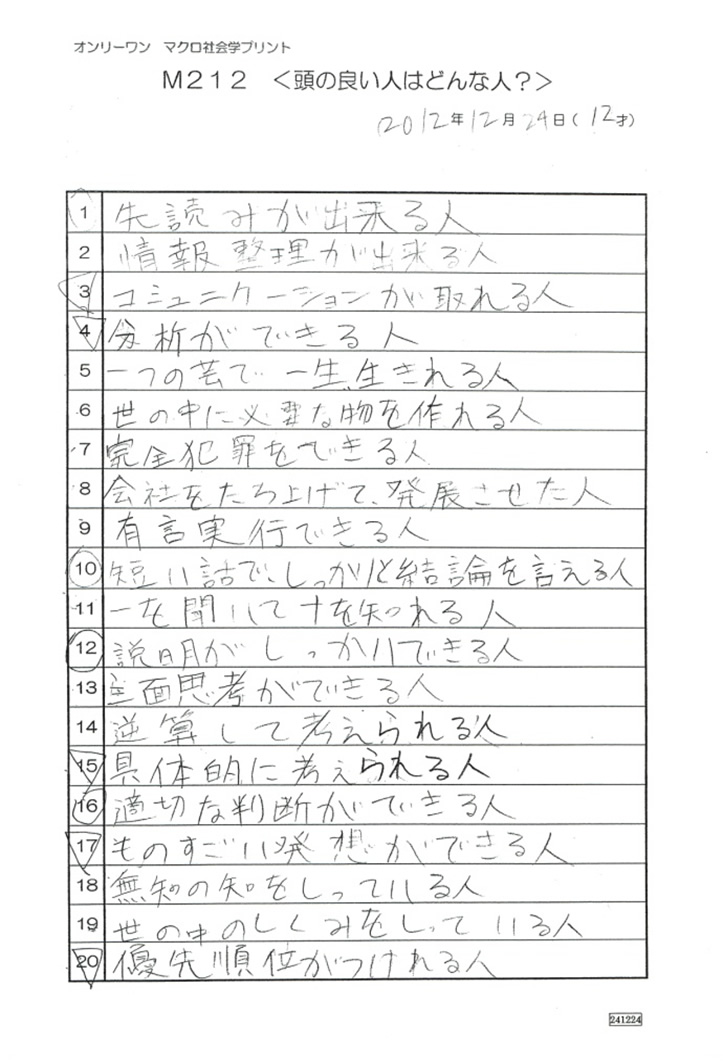 オンリーワン　マクロ社会学プリント
M212　＜頭の良い人はどんな人？＞
2012年12月24日（12才）
1 先読みが出来る人
2 情報整理が出来る人
3 コミュニケーションが取れる人
4 分析ができる人
5 一つの芸で一生、生きれる人
6 世の中に必要な物を作れる人
7 完全犯罪をできる人
8 会社をたち上げて、発展させた人
9 有言実行できる人
10 短い話で、しっかりと結論を言える人
11 一を聞いて十を知れる人
12 説明がしっかりできる人
13 全面思考ができる人
14 逆算して考えられる人
15 具体的に考えられる人
16 適切な判断ができる人
17 ものすごい発想ができる人
18 無知の知をしっている人
19 世の中のしくみをしっている人
20 優先順位がつけれる人
241224